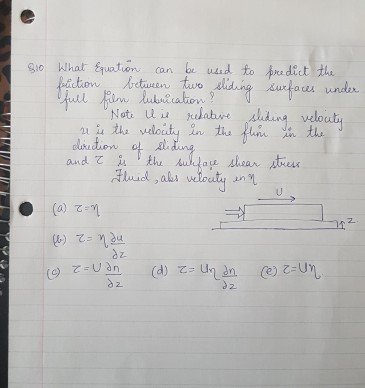 Q10 What Equation can be used to predict the
friction between two sliding surfaces under
full film lubrication?
Note U is relative sliding velocity
u is the velocity in the film in the
direction of sliding
and τ is the surface shear stress
Fluid, abs velocity in η
U
(a) τ=η
z
(b) τ= η ∂u/∂z
(c) τ=U ∂n/∂z (d) τ= Uη ∂n/∂z (e) τ=Uη